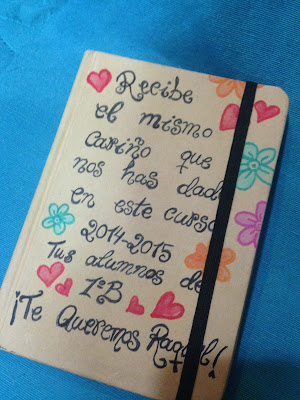 Recibe
el mismo
cariño que
nos has dado
en este curso
2014-2015
Tus alumnos de
1ºB
¡Te Queremos Raquel!